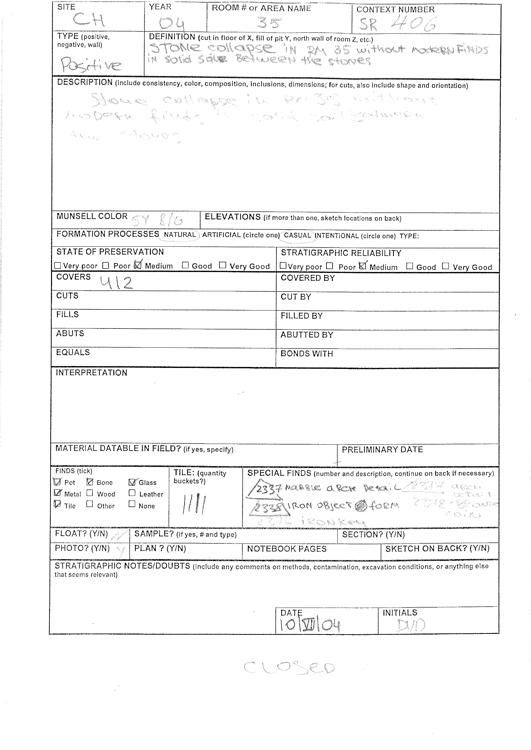 SITE YEAR ROOM # or AREA NAME CONTEXT NUMBER
CH 04 35 SR 406
TYPE (positive, negative, wall) DEFINITION (cut in floor of X, fill of pit Y, north wall of room Z, etc.)
Positive STONE collapse IN RM 35 without modern FINDS
in solid between the stones
DESCRIPTION (Include consistency, color, composition, inclusions, dimensions; for cuts, also include shape and orientation)
Stone collapse in RM 35 without
modern finds solid soil between
the stones
MUNSELL COLOR 5Y 8/6 ELEVATIONS (if more than one, sketch locations on back)
FORMATION PROCESSES NATURAL ARTIFICIAL (circle one) CASUAL INTENTIONAL (circle one) TYPE:
STATE OF PRESERVATION STRATIGRAPHIC RELIABILITY
Very poor Poor Medium Good Very Good Very poor Poor Medium Good Very Good
COVERS 412 COVERED BY
CUTS CUT BY
FILLS FILLED BY
ABUTS ABUTTED BY
EQUALS BONDS WITH
INTERPRETATION
MATERIAL DATABLE IN FIELD? (if yes, specify) PRELIMINARY DATE
FINDS (tick) TILE: (quantity buckets?) SPECIAL FINDS (number and description, continue on back if necessary)
Pot Bone Glass
Metal Wood Leather
Tile Other None
||||
2337 MARBLE arch Detail
2338 IRON OBJECT form
IRON KEY
FLOAT? (Y/N) SAMPLE? (if yes, # and type) SECTION? (Y/N)
PHOTO? (Y/N) Y PLAN ? (Y/N) NOTEBOOK PAGES SKETCH ON BACK? (Y/N)
STRATIGRAPHIC NOTES/DOUBTS (Include any comments on methods, contamination, excavation conditions, or anything else
that seems relevant)
DATE INITIALS
10 VII 04
CLOSED